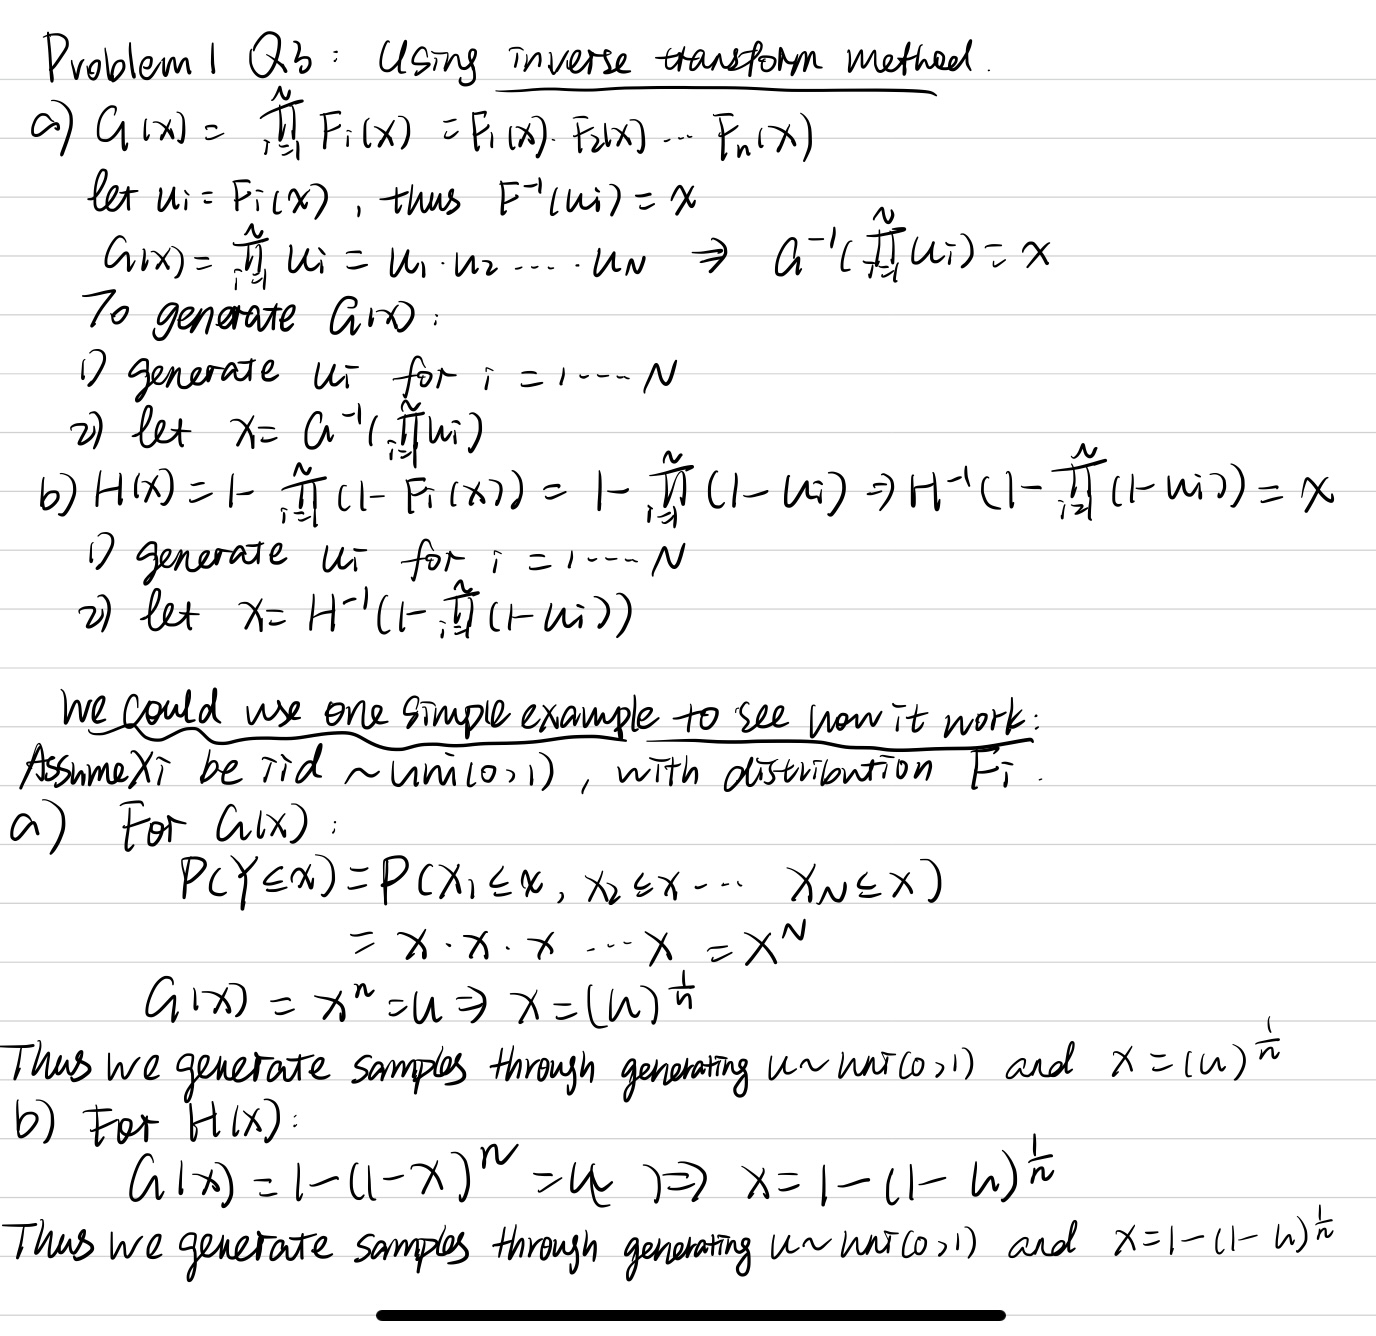 Problem 1 Q3: Using inverse transform method.
a) G(x) = ∏_{i=1}^{N} Fi(x) = F1(x)·F2(x) ... Fn(x)
let ui = Fi(x), thus F⁻¹(ui) = x
G(x) = ∏_{i=1}^{N} ui = u1·u2 ..... uN ⇒ G⁻¹(∏_{i=1}^{N} ui) = x
To generate G(x):
1) generate ui for i = 1 .... N
2) let x = G⁻¹(∏_{i=1}^{N} ui)
b) H(x) = 1- ∏_{i=1}^{N} (1- Fi(x)) = 1- ∏_{i=1}^{N} (1-ui) ⇒ H⁻¹(1- ∏_{i=1}^{N} (1-ui)) = x
1) generate ui for i = 1 .... N
2) let x = H⁻¹(1- ∏_{i=1}^{N} (1-ui))
We could use one simple example to see how it work:
Assume Xi be iid ~ uni(0,1), with distribution Fi.
a) For G(x):
P(Y≤x) = P(X1≤x, X2≤x ... XN≤x)
= x·x·x ... x = x^N
G(x) = x^n = u ⇒ x = (u)^{1/n}
Thus we generate samples through generating u~uni(0,1) and x = (u)^{1/n}
b) For H(x):
G(x) = 1-(1-x)^n = u ⇒ x = 1-(1-u)^{1/n}
Thus we generate samples through generating u~uni(0,1) and x = 1-(1-u)^{1/n}